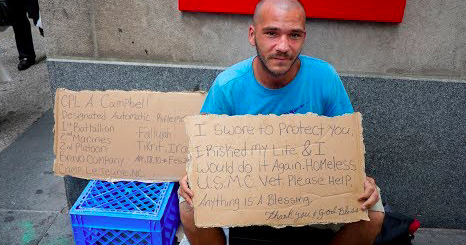 CPL A Campbell
Designated Automatic
1st Battallion
2nd Marines
2nd Platoon
Bravo Company
Camp Lejeune, NC
Fallujah
I Swore to Protect You.
I Risked My Life & I
Would do it Again. Homeless
U.S.M.C Vet. Please Help.
Anything is A Blessing
Thank you & God Bless